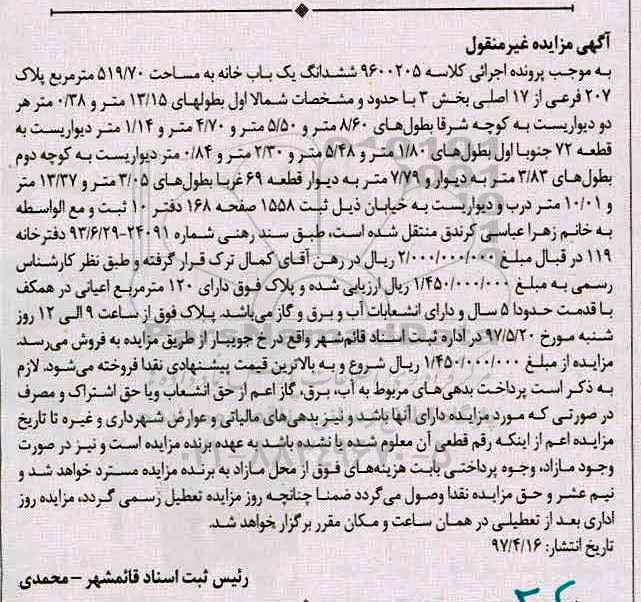 آگهی مزایده غیرمنقول
به موجب پرونده اجرائی کلاسه ۹۶۰۰۲۰۵ ششدانگ یک باب خانه به مساحت ۵۱۹/۷۰ مترمربع پلاک
۲۰۷ فرعی از ۱۷ اصلی بخش ۳ با حدود و مشخصات شمالا اول بطولهای ۱۳/۱۵ متر و ۰/۳۸ متر هر
دو دیواریست به کوچه شرقا بطول‌های ۸/۶۰ متر و ۵/۵۰ متر و ۴/۷۰ متر و ۱/۱۴ متر دیواریست به
قطعه ۷۲ جنوبا اول بطول‌های ۱/۸۰ متر و ۵/۴۸ متر و ۲/۳۰ متر و ۰/۸۴ متر دیواریست به کوچه دوم
بطول‌های ۳/۸۳ متر به دیوار و ۷/۷۹ متر به دیوار قطعه ۶۹ غربا بطول‌های ۳/۰۵ متر و ۱۳/۳۷ متر
و ۱۰/۰۱ متر درب و دیواریست به خیابان ذیل ثبت ۱۵۵۸ صفحه ۱۶۸ دفتر ۱۰ ثبت و مع الواسطه
به خانم زهرا عباسی کرندق منتقل شده است، طبق سند رهنی شماره ۲۴۰۹۱-۹۳/۶/۲۹ دفترخانه
۱۱۹ در قبال مبلغ ۲/۰۰۰/۰۰۰/۰۰۰ ریال در رهن آقای کمال ترک قرار گرفته و طبق نظر کارشناس
رسمی به مبلغ ۱/۴۵۰/۰۰۰/۰۰۰ ریال ارزیابی شده و پلاک فوق دارای ۱۲۰ مترمربع اعیانی در همکف
با قدمت حدودا ۵ سال و دارای انشعابات آب و برق و گاز می‌باشد. پلاک فوق از ساعت ۹ الی ۱۲ روز
شنبه مورخ ۹۷/۵/۲۰ در اداره ثبت اسناد قائم‌شهر واقع در خ جویبار از طریق مزایده به فروش می‌رسد.
مزایده از مبلغ ۱/۴۵۰/۰۰۰/۰۰۰ ریال شروع و به بالاترین قیمت پیشنهادی نقدا فروخته می‌شود. لازم
به ذکر است پرداخت بدهی‌های مربوط به آب، برق، گاز اعم از حق انشعاب ویا حق اشتراک و مصرف
در صورتی که مورد مزایده دارای آنها باشد و نیز بدهی‌های مالیاتی و عوارض شهرداری و غیره تا تاریخ
مزایده اعم از اینکه رقم قطعی آن معلوم شده یا نشده باشد به عهده برنده مزایده است و نیز در صورت
وجود مازاد، وجوه پرداختی بابت هزینه‌های فوق از محل مازاد به برنده مزایده مسترد خواهد شد و
نیم عشر و حق مزایده نقدا وصول می‌گردد ضمنا چنانچه روز مزایده تعطیل رسمی گردد، مزایده روز
اداری بعد از تعطیلی در همان ساعت و مکان مقرر برگزار خواهد شد.
تاریخ انتشار: ۹۷/۴/۱۶
رئیس ثبت اسناد قائمشهر – محمدی